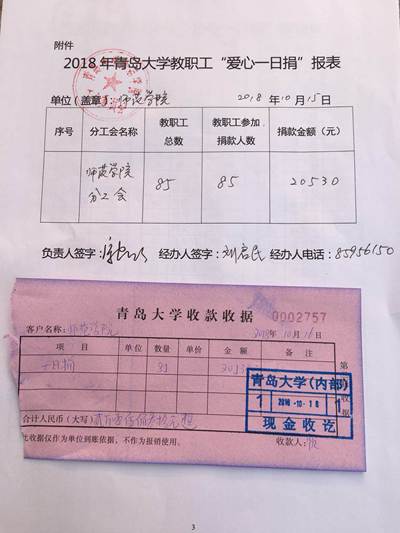 附件
2018年青岛大学教职工“爱心一日捐”报表
单位(盖章):师范学院 2018年10月15日
序号 分工会名称 教职工总数 教职工参加捐款人数 捐款金额(元)
师范学院分工会 85 85 20530
负责人签字: 经办人签字:刘启民 经办人电话:85956150
青岛大学收款收据 0002757
客户名称:师范学院 2018年10月16日
项目 单位 数量 单价 金额 备注
一日捐 85
青岛大学(内部)
1 2018-10-16 1
现金收讫
合计人民币(大写)
此收据仅作为单位到账依据,不作为报销使用。 收款人:
第
收据
3